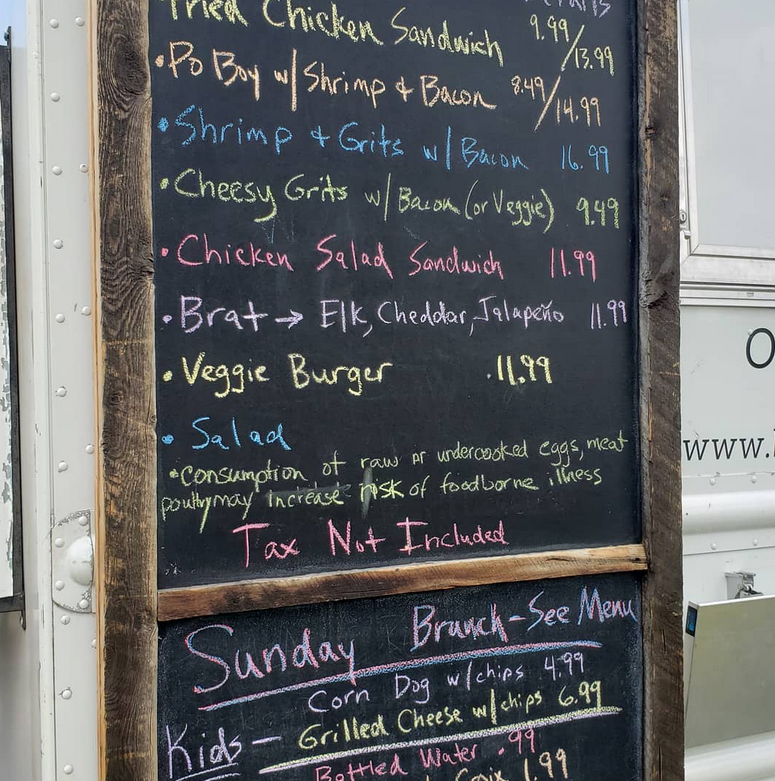 Fried Chicken Sandwich 9.99/13.99
•Po Boy w/Shrimp & Bacon 8.49/14.99
•Shrimp & Grits w/Bacon 16.99
•Cheesy Grits w/Bacon (or Veggie) 9.49
•Chicken Salad Sandwich 11.99
•Brat → Elk, Cheddar, Jalapeño 11.99
•Veggie Burger .11.99
•Salad
•consumption of raw or undercooked eggs, meat
poultry may increase risk of foodborne illness
Tax Not Included
Sunday Brunch-See Menu
Corn Dog w/chips 4.99
Kids — Grilled Cheese w/chips 6.99
Bottled Water .99
1.99
O
www.